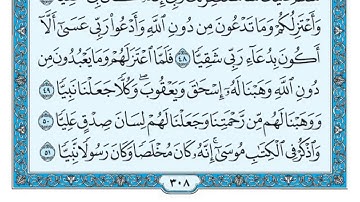 وَأَعْتَزِلُكُمْ وَمَا تَدْعُونَ مِن دُونِ ٱللَّهِ وَأَدْعُوا۟ رَبِّى عَسَىٰٓ أَلَّآ
أَكُونَ بِدُعَآءِ رَبِّى شَقِيًّا ٤٨ فَلَمَّا ٱعْتَزَلَهُمْ وَمَا يَعْبُدُونَ مِن
دُونِ ٱللَّهِ وَهَبْنَا لَهُۥٓ إِسْحَٰقَ وَيَعْقُوبَ ۖ وَكُلًّا جَعَلْنَا نَبِيًّا ٤٩
وَوَهَبْنَا لَهُم مِّن رَّحْمَتِنَا وَجَعَلْنَا لَهُمْ لِسَانَ صِدْقٍ عَلِيًّا ٥٠
وَٱذْكُرْ فِى ٱلْكِتَٰبِ مُوسَىٰٓ ۚ إِنَّهُۥ كَانَ مُخْلَصًا وَكَانَ رَسُولًا نَّبِيًّا ٥١
٣٠٨